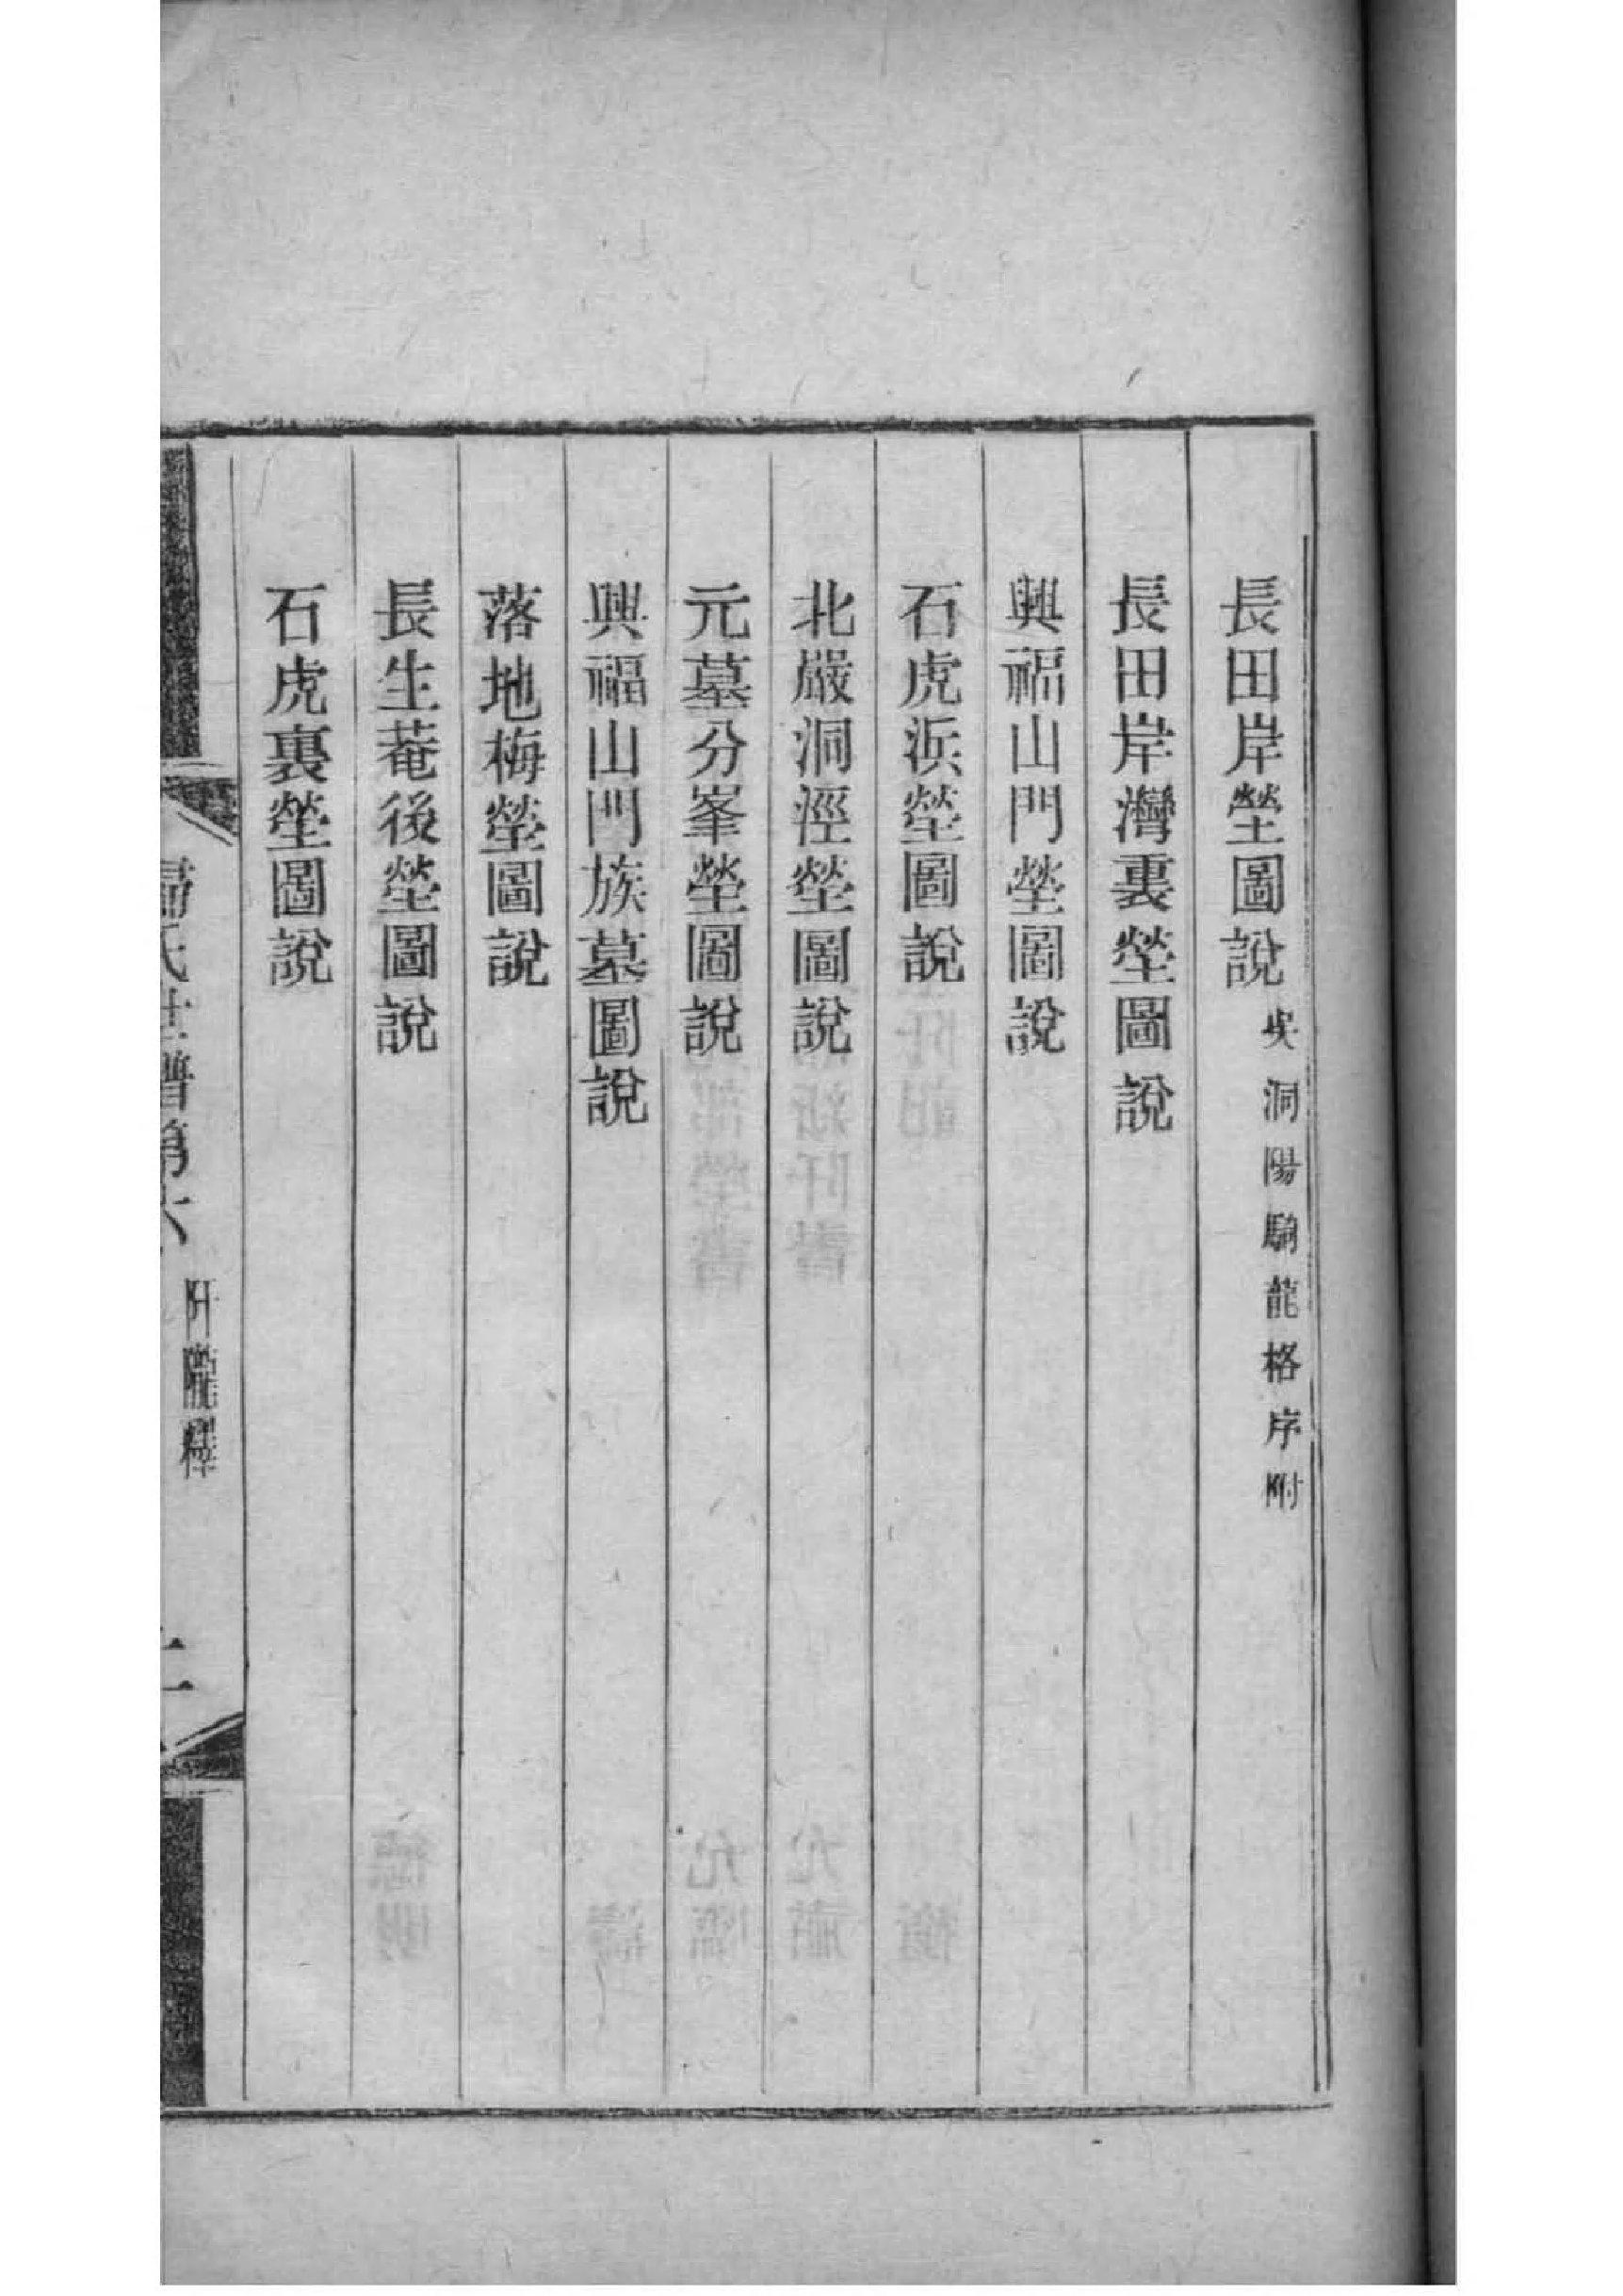 長田岸塋圖說 吳洞陽騶龍格序附
長田岸灣裏塋圖說
興福山門塋圖說
石虎浜塋圖說
北嚴洞涇塋圖說
元墓分峯塋圖說
興福山門族墓圖說
落地梅塋圖說
長生菴後塋圖說
石虎裏塋圖說
歸氏世譜第六 阡隴釋